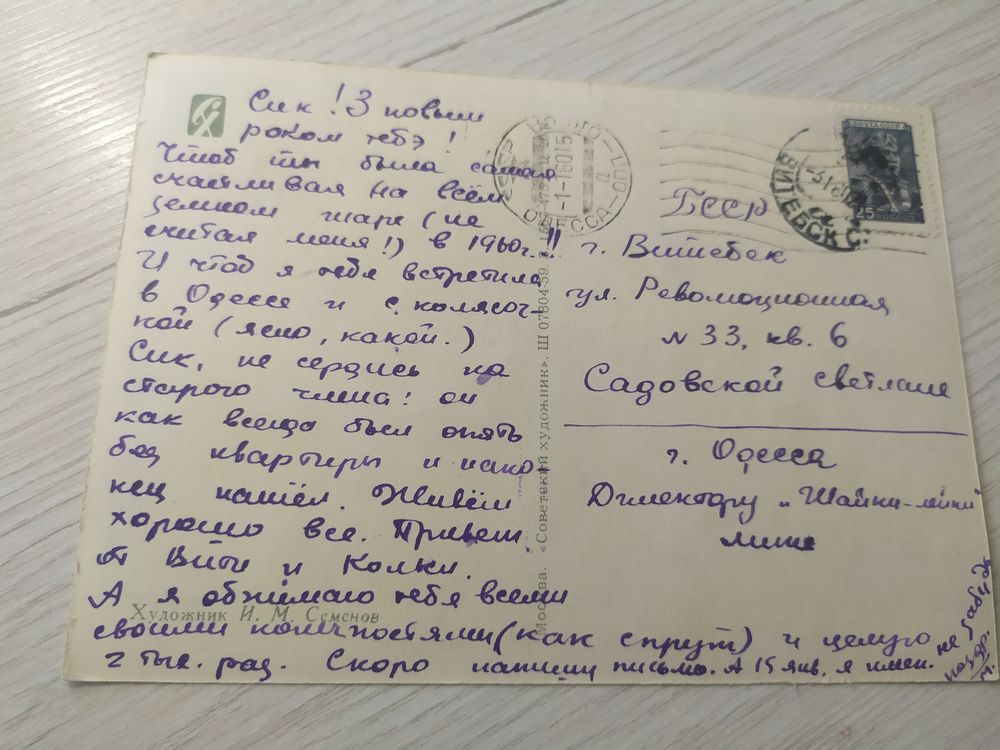 Сик! З новым
роком тебэ!
Чтоб ты была самая
счастливая на всём
земном шаре (не
считая меня!) в 1960г.!!
И чтоб я тебя встретила
в Одессе и с колясоч-
кой (ясно, какой.)
Сик, не сердись на
старого члена: он
как всегда был опять
без квартиры и нако-
нец нашёл. Живём
хорошо все. Привет
от Вити и Колки.
А я обнимаю тебя всеми
Художник И. М. Семенов
своими конечностями (как спрут) и целую
2 тыс. раз. Скоро напишу письмо. А 15 янв. я имен.
не забудь
поздр.
Москва. «Советский художник». Ш 07804-59.
ОДЕССА
ПОЧТА СССР
25
ВИТЕБСК
БССР
г. Витебск
ул. Революционная
№ 33, кв. 6
Садовской Светлане
г. Одесса
Директору „Шайки-лейки"